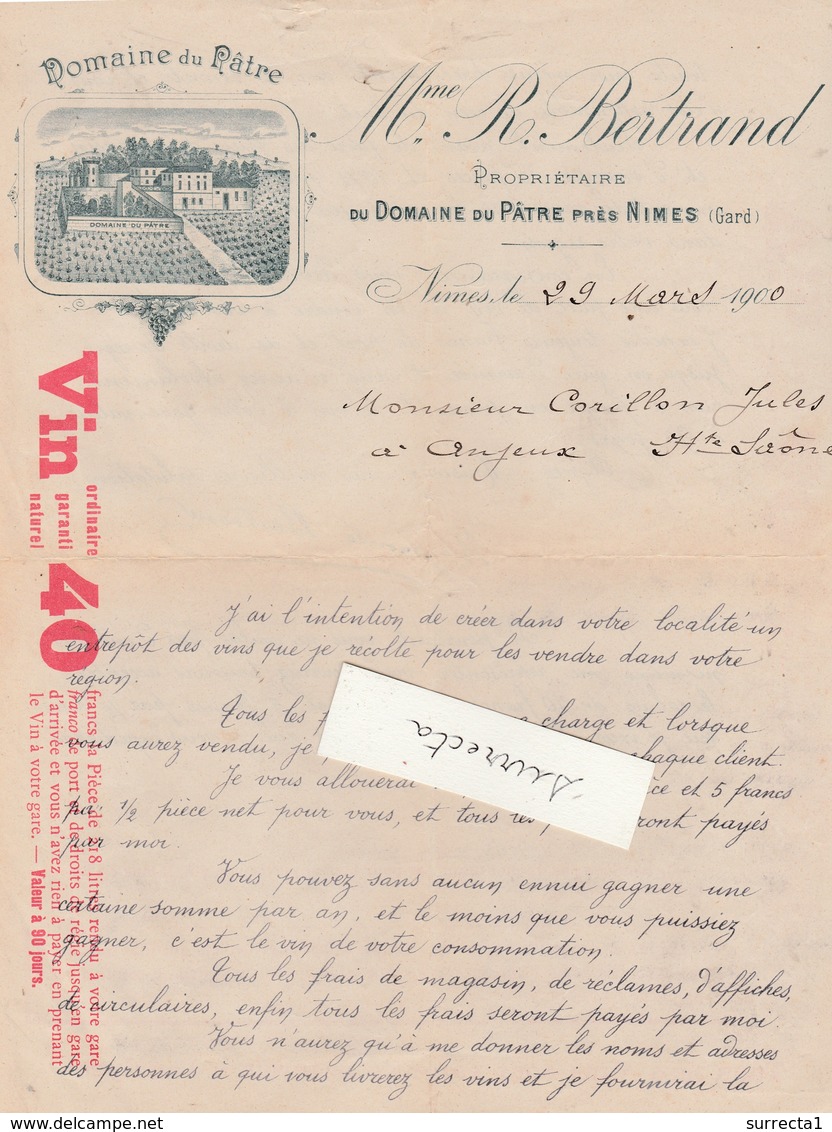 Domaine du Pâtre
DOMAINE DU PÂTRE
Mme R. Bertrand
PROPRIÉTAIRE
DU DOMAINE DU PÂTRE PRÈS NIMES (Gard)
Nimes, le 29 Mars 1900
Monsieur Corillon Jules
à Anjeux Hte Saône
Vin
ordinaire
garanti
naturel
40
francs la Pièce de 218 litres rendu à votre gare
franco de port et de droits de régie jusqu'en gare
d'arrivée et vous n'avez rien à payer en prenant
le Vin à votre gare. — Valeur à 90 jours.
J'ai l'intention de créer dans votre localité un
entrepôt des vins que je récolte pour les vendre dans votre
région.
Tous les charge et lorsque
vous aurez vendu, je chaque client.
Je vous allouerai et 5 francs
par 1/2 pièce net pour vous, et tous les seront payés
par moi.
Vous pouvez sans aucun ennui gagner une
certaine somme par an, et le moins que vous puissiez
gagner, c'est le vin de votre consommation.
Tous les frais de magasin, de réclames, d'affiches,
de circulaires, enfin tous les frais seront payés par moi.
Vous n'aurez qu'à me donner les noms et adresses
des personnes à qui vous livrerez les vins et je fournirai la
surrecta
surrecta1